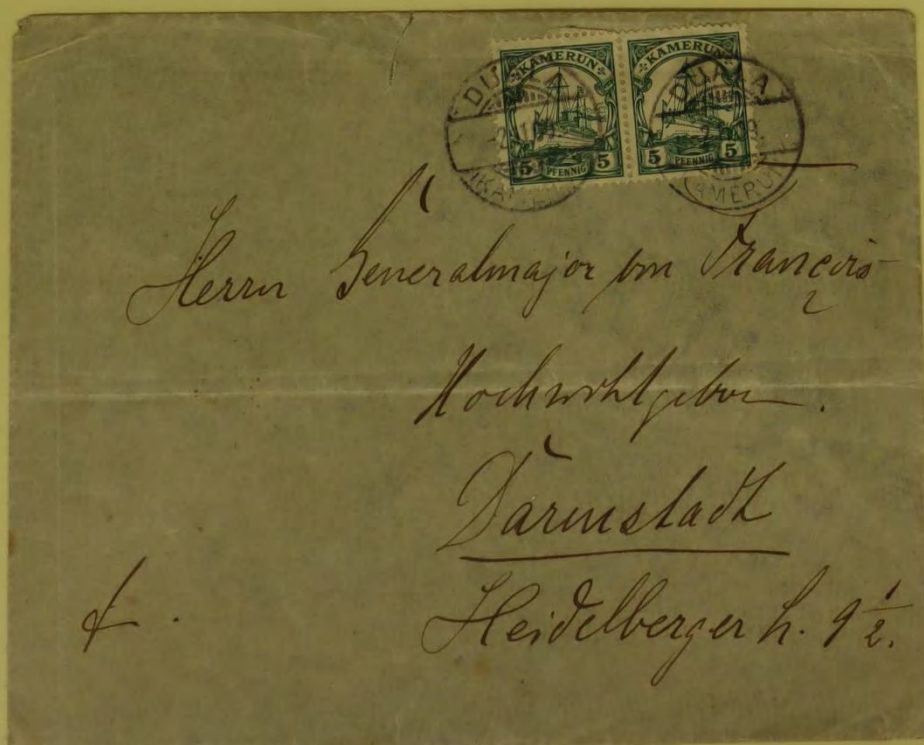 KAMERUN KAMERUN
5 PFENNIG 5 5 PFENNIG 5
DUALA DUALA
KAMERUN
Herrn Generalmajor von François
Hochwohlgeboren.
Darmstadt
Heidelberger 9 1/2.